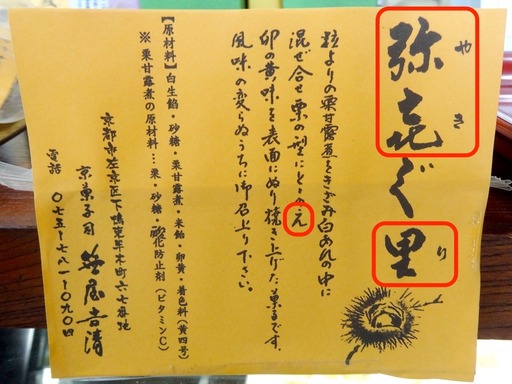 弥㐂ぐ里
やき
り
粒よりの栗甘露煮をきざみ白あんの中に
混ぜ合せ栗の型にととのえ
卵の黄味を表面にぬり焼き上げた菓子です。
風味の変らぬうちに御召上り下さい。
【原材料】白生餡・砂糖・栗甘露煮・米飴・卵黄・着色料(黄四号)
※栗甘露煮の原材料…栗・砂糖・酸化防止剤(ビタミンC)
京都市左京区下鴨東半木町六七番地
京菓子司 笹屋吉清
電話 〇七五ー七八一ー〇九〇四